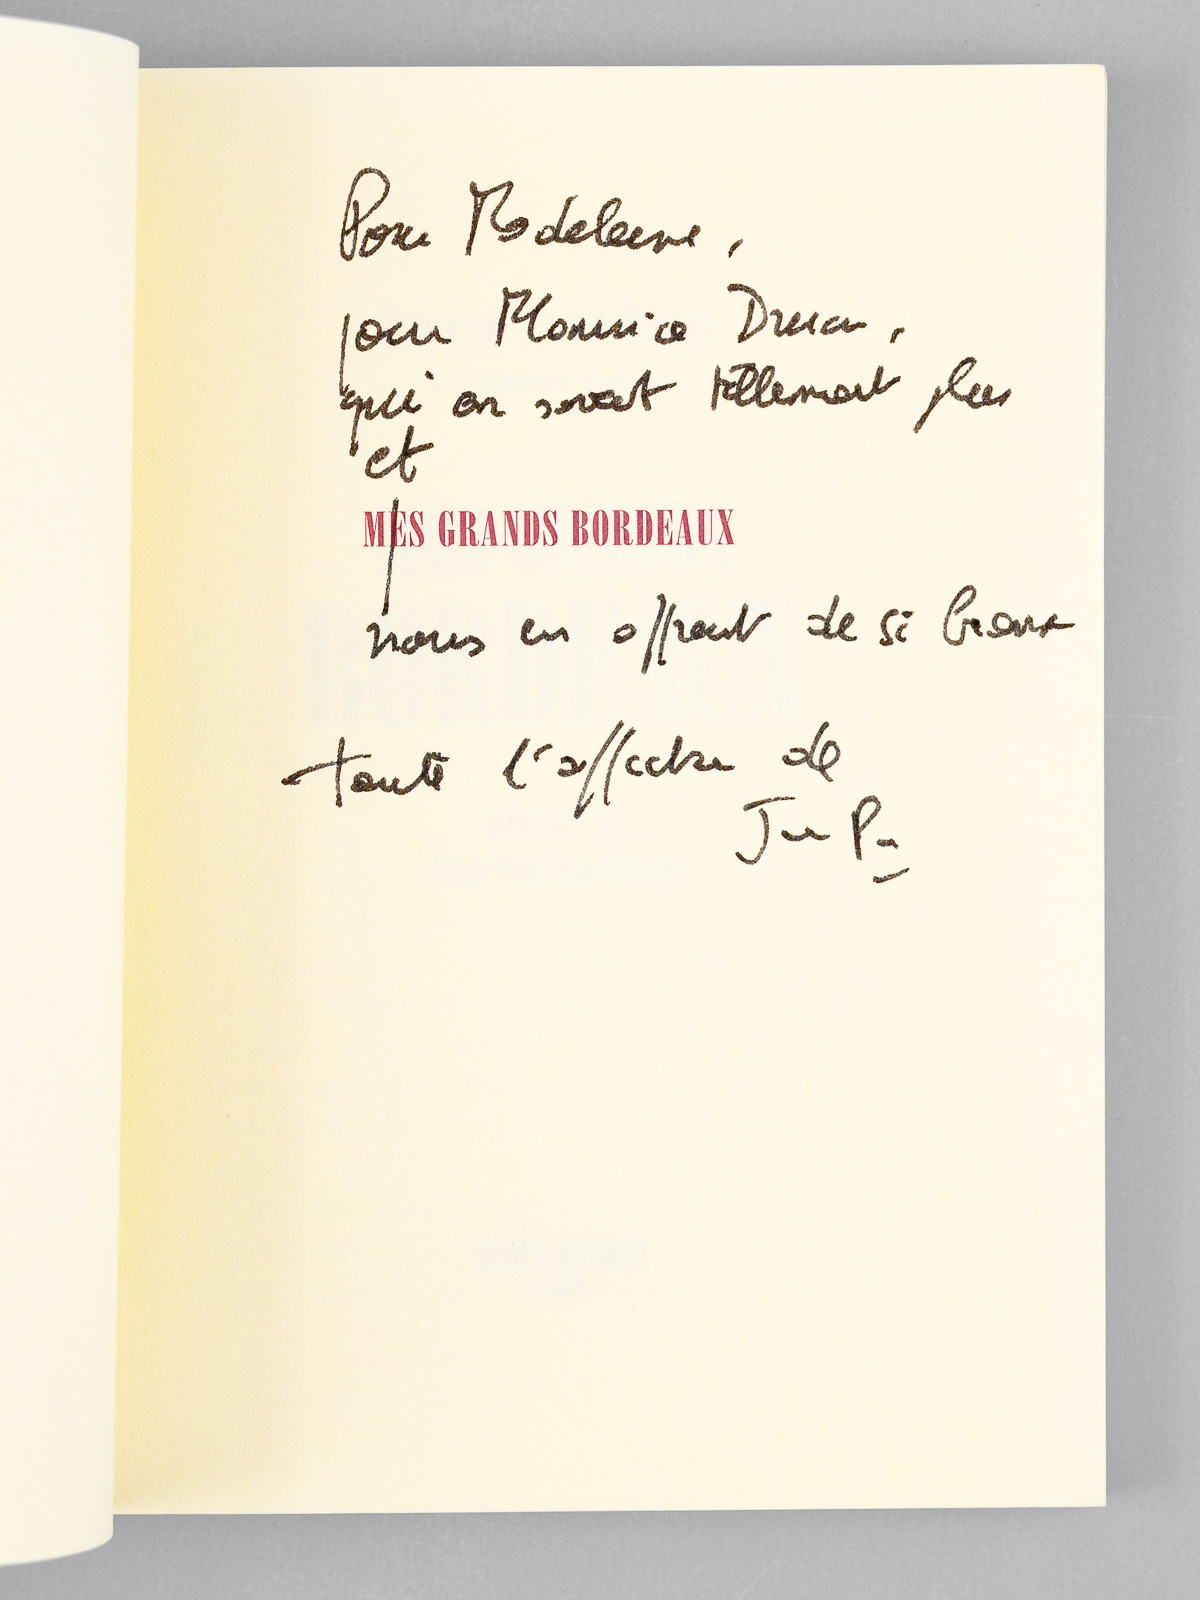 Pour Madeleine,
pour Maurice Druon,
qui en savent tellement plus
et
MES GRANDS BORDEAUX
nous en offrent de si beaux
toute l'affection de